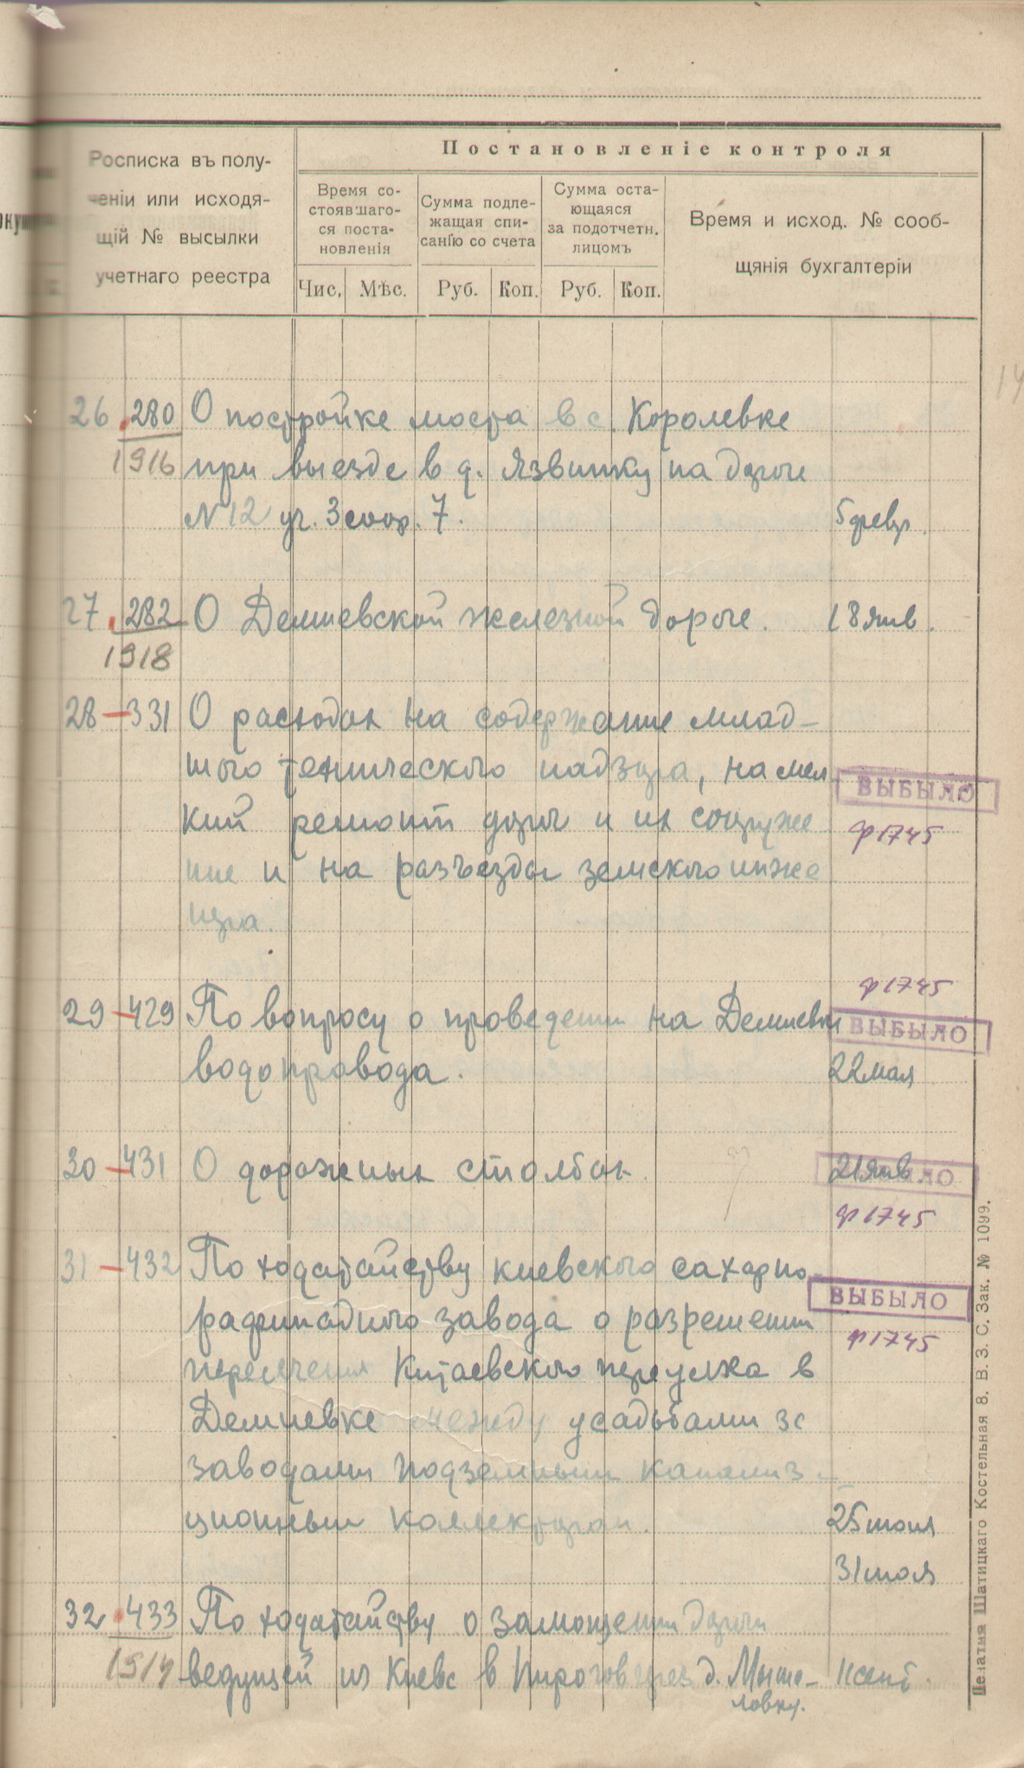 Росписка въ полу-
ченіи или исходя-
щій № высылки
учетнаго реестра
Постановленіе контроля
Время со-
стоявшаго-
ся поста-
новленія
Сумма подле-
жащая спи-
санію со счета
Сумма оста-
ющаяся
за подотчетн.
лицомъ
Время и исход. № сооб-
щянія бухгалтеріи
Чис. Мѣс. Руб. Коп. Руб. Коп.
26 280 О постройке моста в с. Королевке
1916 при выезде в д. Язвинку на дороге
N 12 уч. 3 соор. 7. 5 февр.
27 282 О Демиевской железной дороге. 18 янв.
1918
28 – 331 О расходах на содержание млад-
шего технического надзора, на мел
ВЫБЫЛО
кий ремонт дорог и их сооруже
ф 1745
ние и на разъезды земского инже
нера.
ф 1745
29 – 429 По вопросу о проведении на Демиевке
ВЫБЫЛО
водопровода. 22 мая
30 – 431 О дорожных столбах. 21 янв
ВЫБЫЛО
ф 1745
31 – 432 По ходатайству киевского сахарно-
ВЫБЫЛО
рафинадного завода о разрешении
ф 1745
пересечения Китаевского переулка в
Демиевке между усадьбами за
заводами подземным канализа-
ционным коллектором. 25 июня
31 июля
32 433 По ходатайству о замощении дороги
1914 ведущей из Киева в Пирогов через д. Мыше- 11 сент.
ловку.
Печатня Шатицкаго Костельная 8. В. З. С. Зак. № 1099.